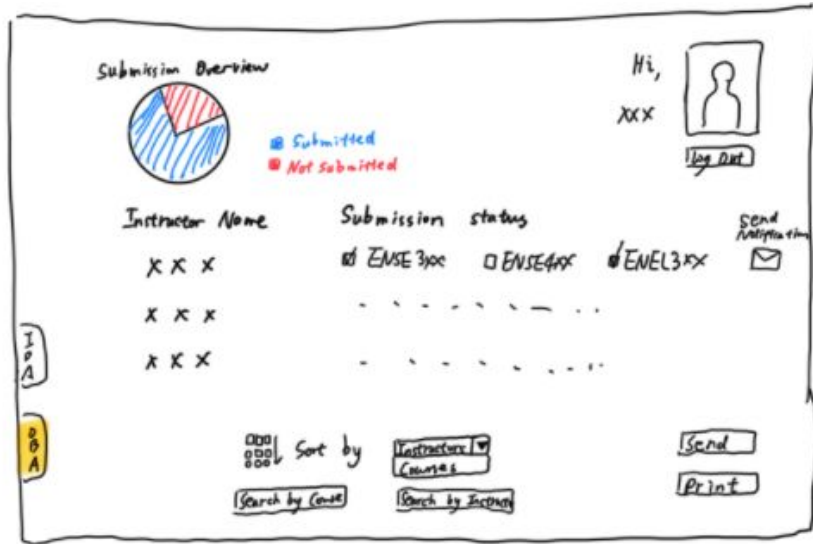 Submission Overview
Hi,
xxx
Submitted
Not Submitted
Log Out
Instructor Name
Submission status
Send
Notification
x x x
ENSE 3xx
ENSE4xx
ENEL3xx
x x x
x x x
IOA
OBA
Sort by
Instructors
Courses
Send
Search by Course
Search by Instructor
Print